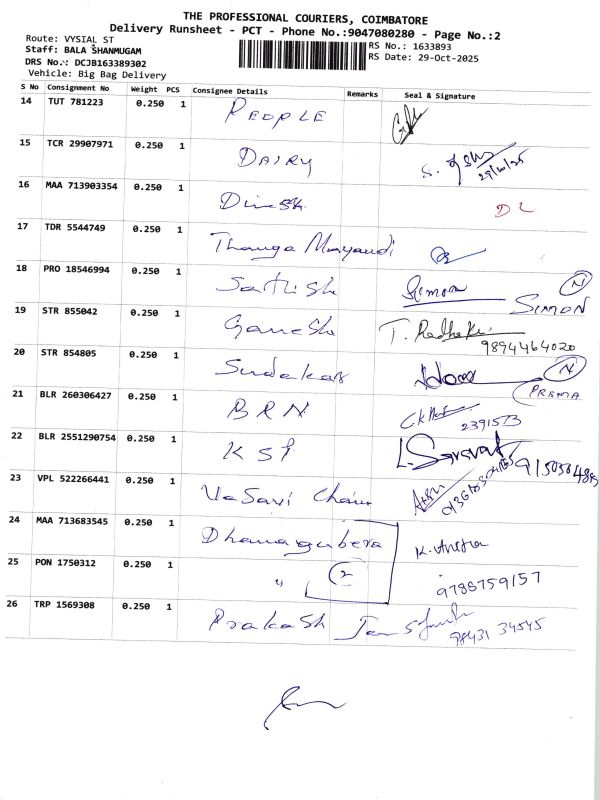 THE PROFESSIONAL COURIERS, COIMBATORE
Delivery Runsheet - PCT - Phone No.:9047080280 - Page No.:2
Route: VYSIAL ST
Staff: BALA SHANMUGAM
RS No.: 1633893
DRS No.: DCJB163389302
RS Date: 29-Oct-2025
Vehicle: Big Bag Delivery
S No Consignment No Weight PCS Consignee Details Remarks Seal & Signature
14 TUT 781223 0.250 1 PEOPLE
15 TCR 29907971 0.250 1 DAIRY 29/10/25
16 MAA 713903354 0.250 1 Dinesh D L
17 TDR 5544749 0.250 1 Thanga Mayandi
18 PRO 18546994 0.250 1 Sathish Simon N SIMON
19 STR 855042 0.250 1 Ganesh T. Radha 9894464020
20 STR 854805 0.250 1 Sudakar N PREMA
21 BLR 260306427 0.250 1 BRN 2391573
22 BLR 2551290754 0.250 1 KSP L. Sarsvat
23 VPL 522266441 0.250 1 VaSavi Chain
24 MAA 713683545 0.250 1 Dhanagubera K. Anitha
25 PON 1750312 0.250 1 " 2 9788759157
26 TRP 1569308 0.250 1 Prakash 98431 34545